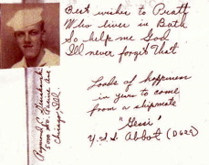 Best wishes to Pratt
Who lives in Bath
So help me God
I'll never forget that
Loads of happiness
in years to come
from a shipmate
"Geri"
U.S.S Abbot (D629)
Raymond C.
Chicago, Ill.